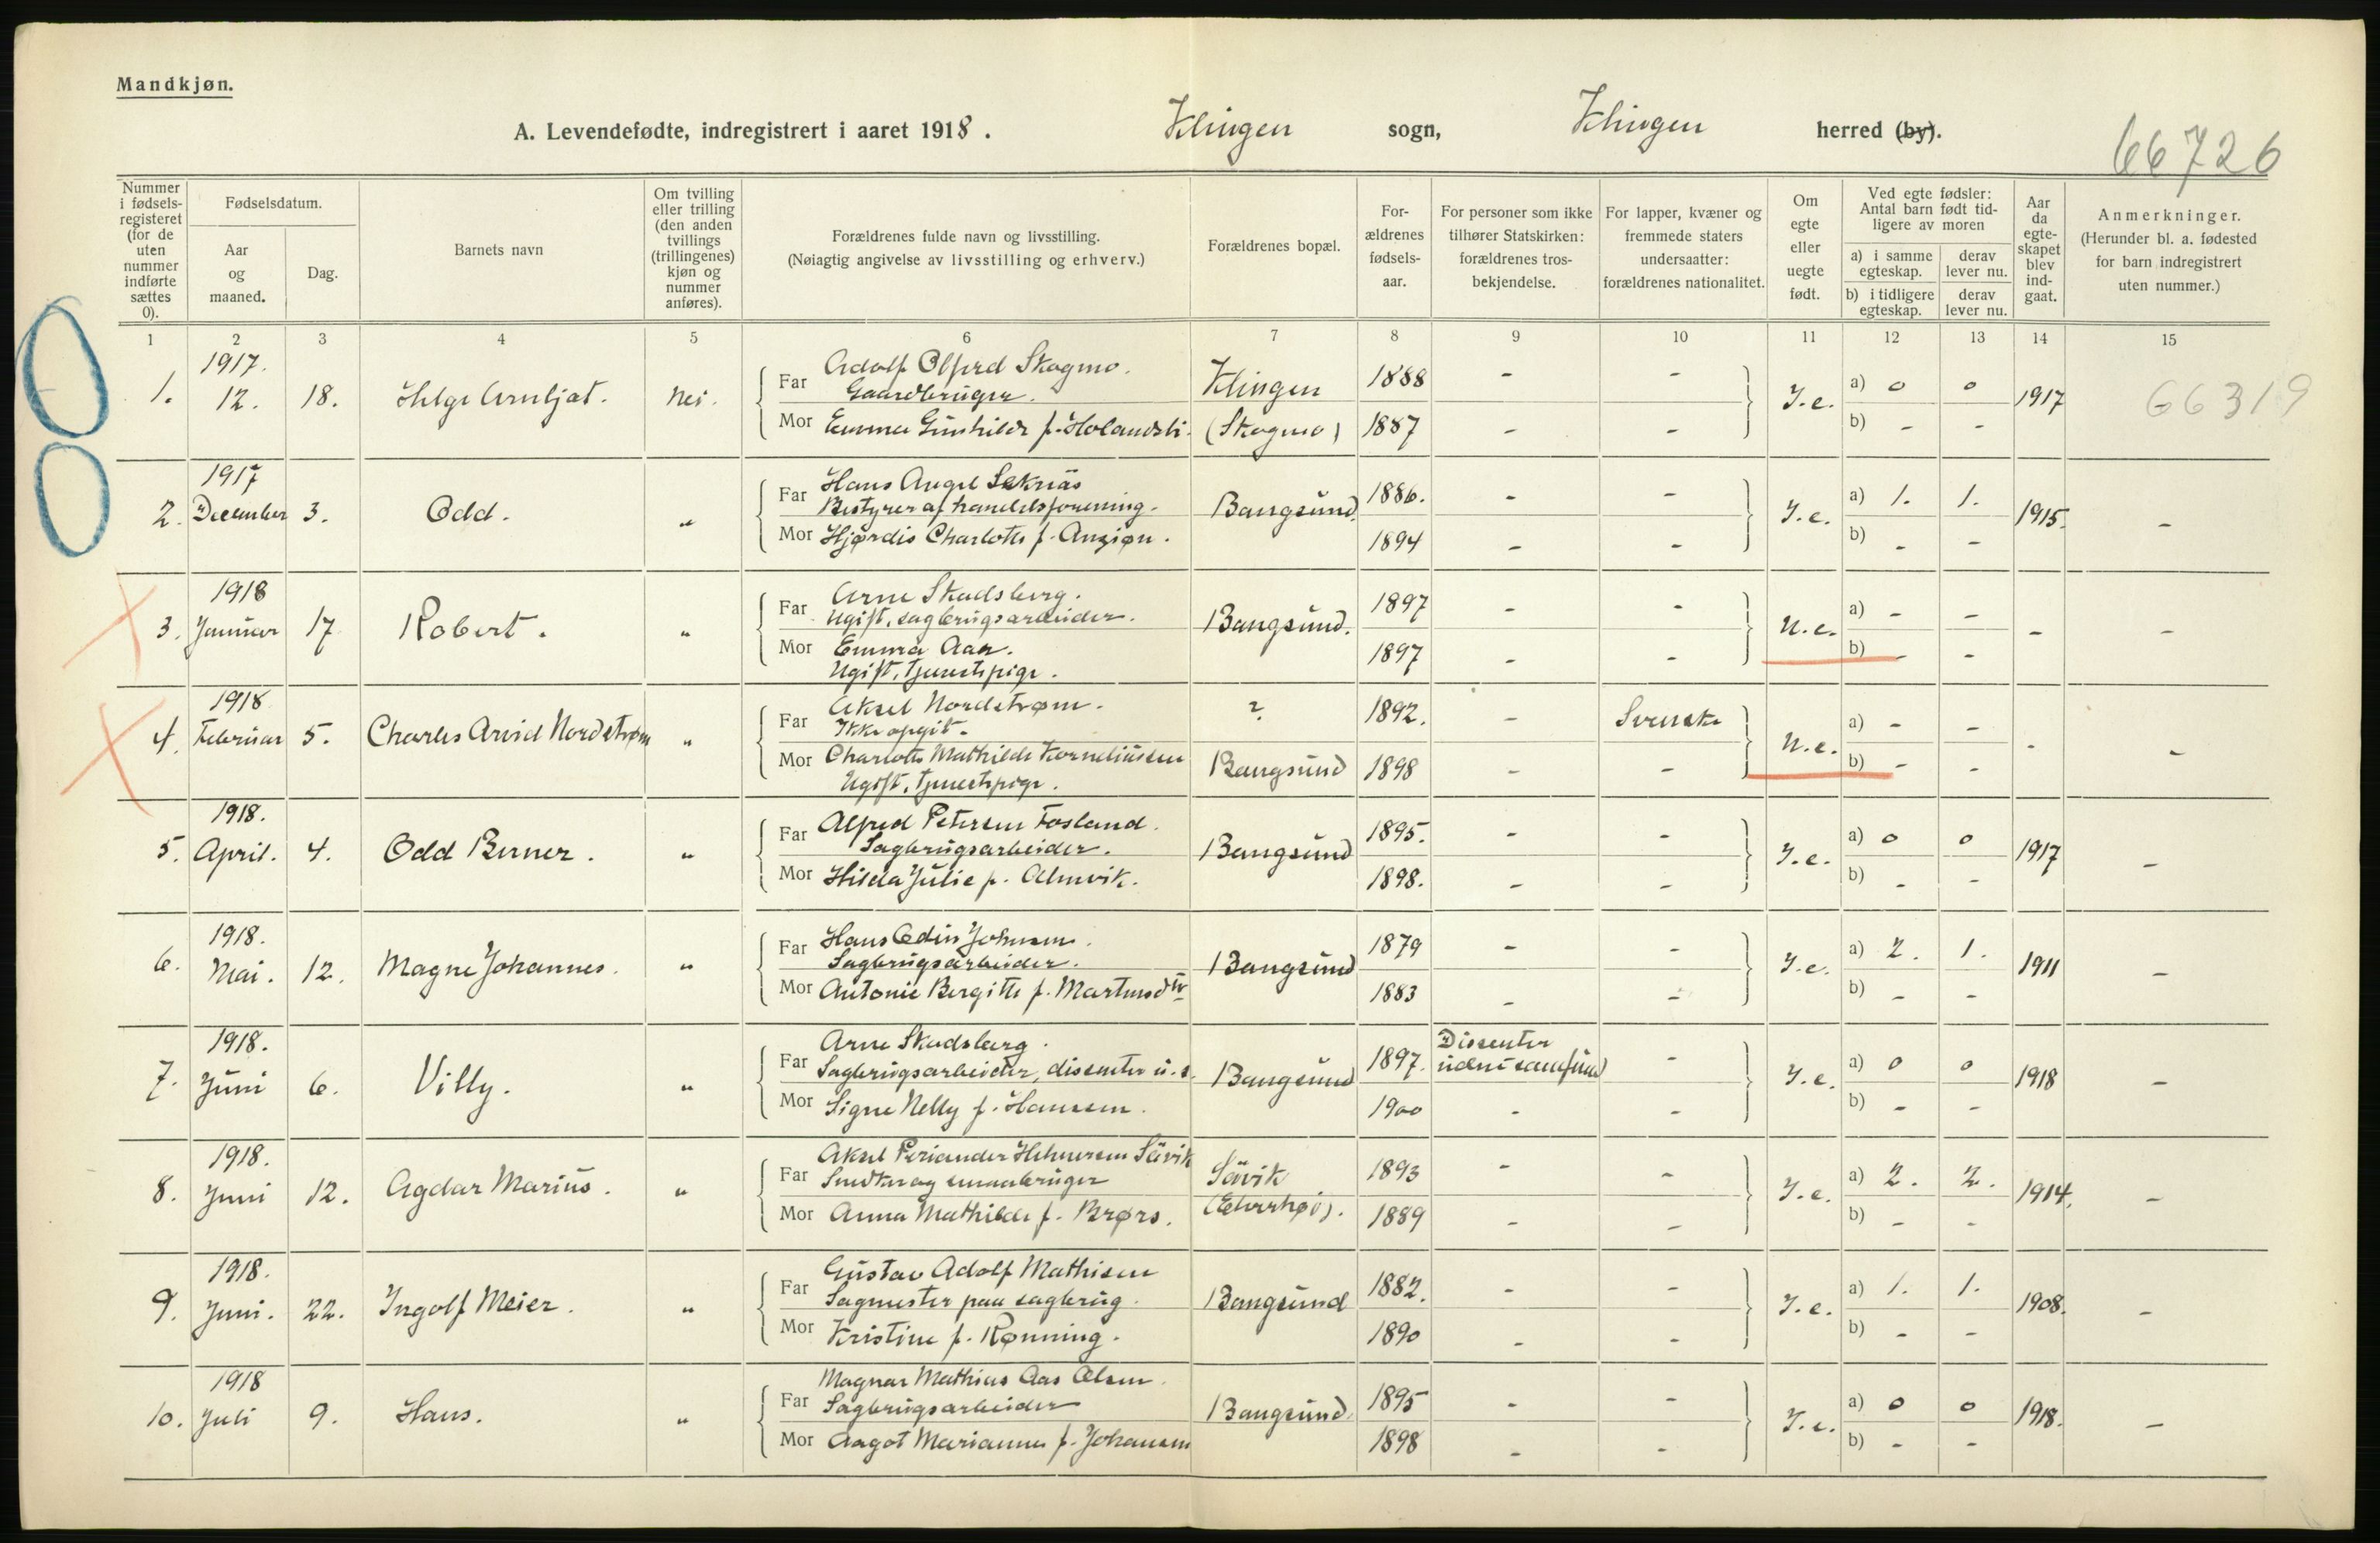 Mandkjøn.
A. Levendefødte, indregistrert i aaret 1918. Klingen sogn, Klingen herred (by).
66726
Nummer i fødsels-registeret (for de uten nummer indførte sættes 0).
Fødselsdatum.
Aar og maaned.
Dag.
Barnets navn
Om tvilling eller trilling (den anden tvillings (trillingenes) kjøn og nummer anføres).
Forældrenes fulde navn og livsstilling.
(Nøiagtig angivelse av livsstilling og erhverv.)
Forældrenes bopæl.
For-ældrenes fødsels-aar.
For personer som ikke tilhører Statskirken: forældrenes tros-bekjendelse.
For lapper, kvæner og fremmede staters undersaatter: forældrenes nationalitet.
Om egte eller uegte født.
Ved egte fødsler: Antal barn født tid-ligere av moren
a) i samme egteskap.
derav lever nu.
b) i tidligere egteskap.
derav lever nu.
Aar da egte-skapet blev ind-gaat.
Anmerkninger.
(Herunder bl. a. fødested for barn indregistrert uten nummer.)
1 2 3 4 5 6 7 8 9 10 11 12 13 14 15
1917.
1. 12. 18. Helge Arnljot. Nei.
Far Adolf Olfred Skogmo. Klingen 1888 - -
Gaardbruger.
Mor Emma Gunhilde f. Holandsli. (Skogmo) 1887 - -
I.e. a) 0 0 1917 66319
b) - -
1917
2. December 3. Odd. "
Far Hans Angel Seknäs
Bestyrer af handelsforening. Bangsund. 1886. - -
Mor Hjørdis Charlotte f. Anzjøn. 1894 - -
I.e. a) 1. 1. 1915. -
b) - -
1918
3. Januar 17 Robert. "
Far Arne Skadsberg.
Ugift, sagbrugsarbeider. Bangsund. 1897 - -
Mor Emma Aas. 1897 - -
Ugift, tjenestepige.
U.e. a) - - - -
b) - -
1918
4. Februar 5. Charles Arvid Nordstrøm "
Far Aksel Nordstrøm. ? 1892. - Svenske
Ikke opgit.
Mor Charlotte Mathilde Korneliussen Bangsund 1898 - -
Ugift, tjenestepige.
U.e. a) - - - -
b) - -
1918.
5. April. 4. Odd Berner. "
Far Alfred Petersen Fosland.
Sagbrugsarbeider. Bangsund 1895. - -
Mor Hilda Julie f. Almvik. 1898. - -
I.e. a) 0 0 1917 -
b) - -
1918.
6. Mai. 12. Magne Johannes. "
Far Hans Edin Johnsen.
Sagbrugsarbeider. Bangsund 1879 - -
Mor Antonie Bergitte f. Martinsdtr 1883 - -
I.e. a) 2. 1. 1911 -
b) - -
1918.
7. Juni 6. Villy. "
Far Arne Skadsberg. Dissenter
Sagbrugsarbeider, dissenter u.s. Bangsund 1897. uden samfund -
Mor Signe Nelly f. Hanssen. 1900 - -
I.e. a) 0 0 1918 -
b) - -
1918.
8. Juni 12. Agdar Marius. "
Far Aksel Periander Helmersen Sävik Sävik 1893 - -
Snedker og smaabruger
Mor Anna Mathilde f. Brørs. 1889 - -
I.e. a) 2. 2. 1914. -
b) - -
1918.
9. Juni. 22. Ingolf Meier. "
Far Gustav Adolf Mathisen
Sagmester paa sagbrug. Bangsund 1882. - -
Mor Kristine f. Rønning. 1890 - -
I.e. a) 1. 1. 1908. -
b) - -
1918
10. Juli 9. Hans. "
Far Magnar Mathias Aas Olsen.
Sagbrugsarbeider Bangsund. 1895 - -
Mor Aagot Marianne f. Johansen 1898 - -
I.e. a) 0 0 1918. -
b) - -